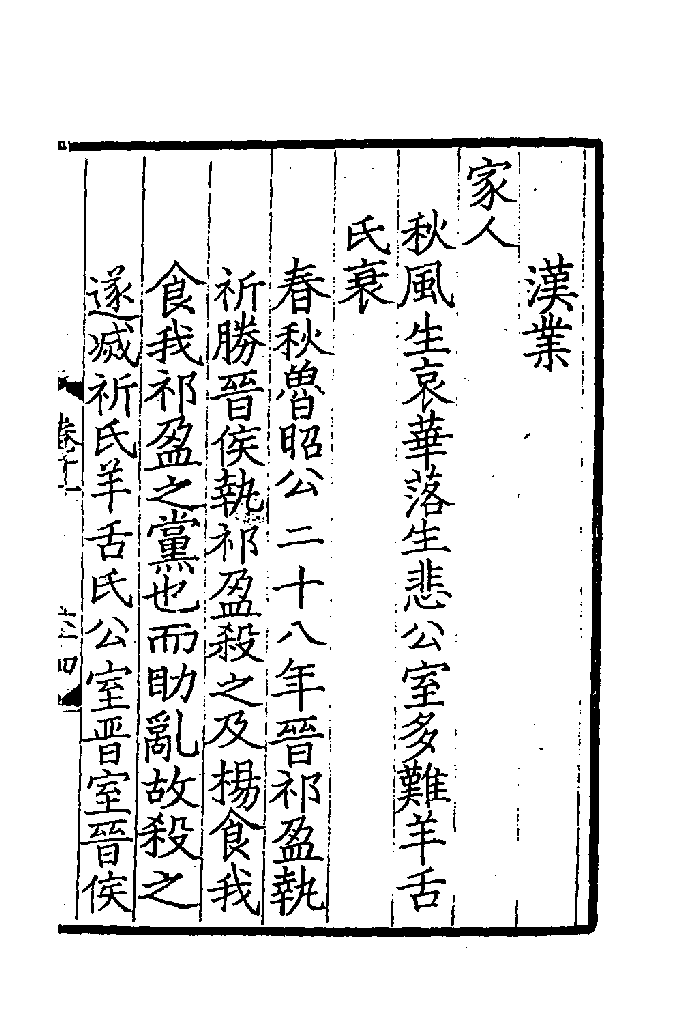 漢業
家人
秋風生哀華落生悲公室多難羊舌
氏衰
春秋魯昭公二十八年晉祁盈執
祈勝晉侯執祁盈殺之及揚食我
食我祁盈之黨也而助亂故殺之
遂滅祈氏羊舌氏公室晋室晉侯
卷十一